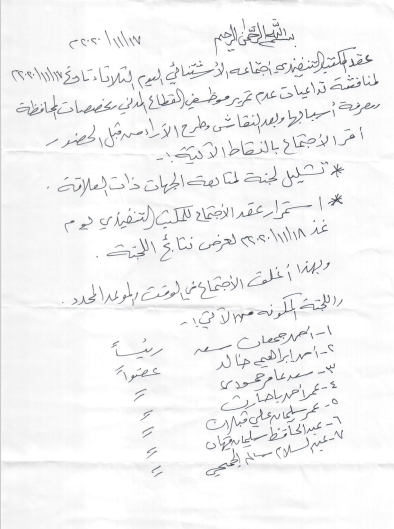 بسم الله الرحمن الرحيم
٢٠٢٠/١١/١٧م
عقد المكتب التنفيذي اجتماعه الأستثنائي اليوم الثلاثاء تاريخ ٢٠٢٠/١١/١٧م
لمناقشة تداعيات عدم تمرير موظفي القطاع المدني بمخصصات المحافظة
ومعرفة أسبابها وبعد النقاش وطرح الآراء من قبل الحضور
أقر الأجتماع بالنقاط الآتية :-
* تشكيل لجنة لمتابعة الجهات ذات العلاقة .
* استمرار عقد الأجتماع للمكتب التنفيذي يوم
غذ ٢٠٢٠/١١/١٨م لعرض نتائج اللجنة .
وبهذا أغلق الأجتماع في الوقت والموعد المحدد .
واللجنة المكونه من الآتي :-
١- احمد جمعان سعد رئيساً
٢- احمد ابراهيم خالد عضواً
٣- سعد عامر حمودي =
٤- عمر أحمد =
٥- عمر سليمان علي =
٦- عبدالحافظ سليمان =
٧- عبدالسلام سالم =